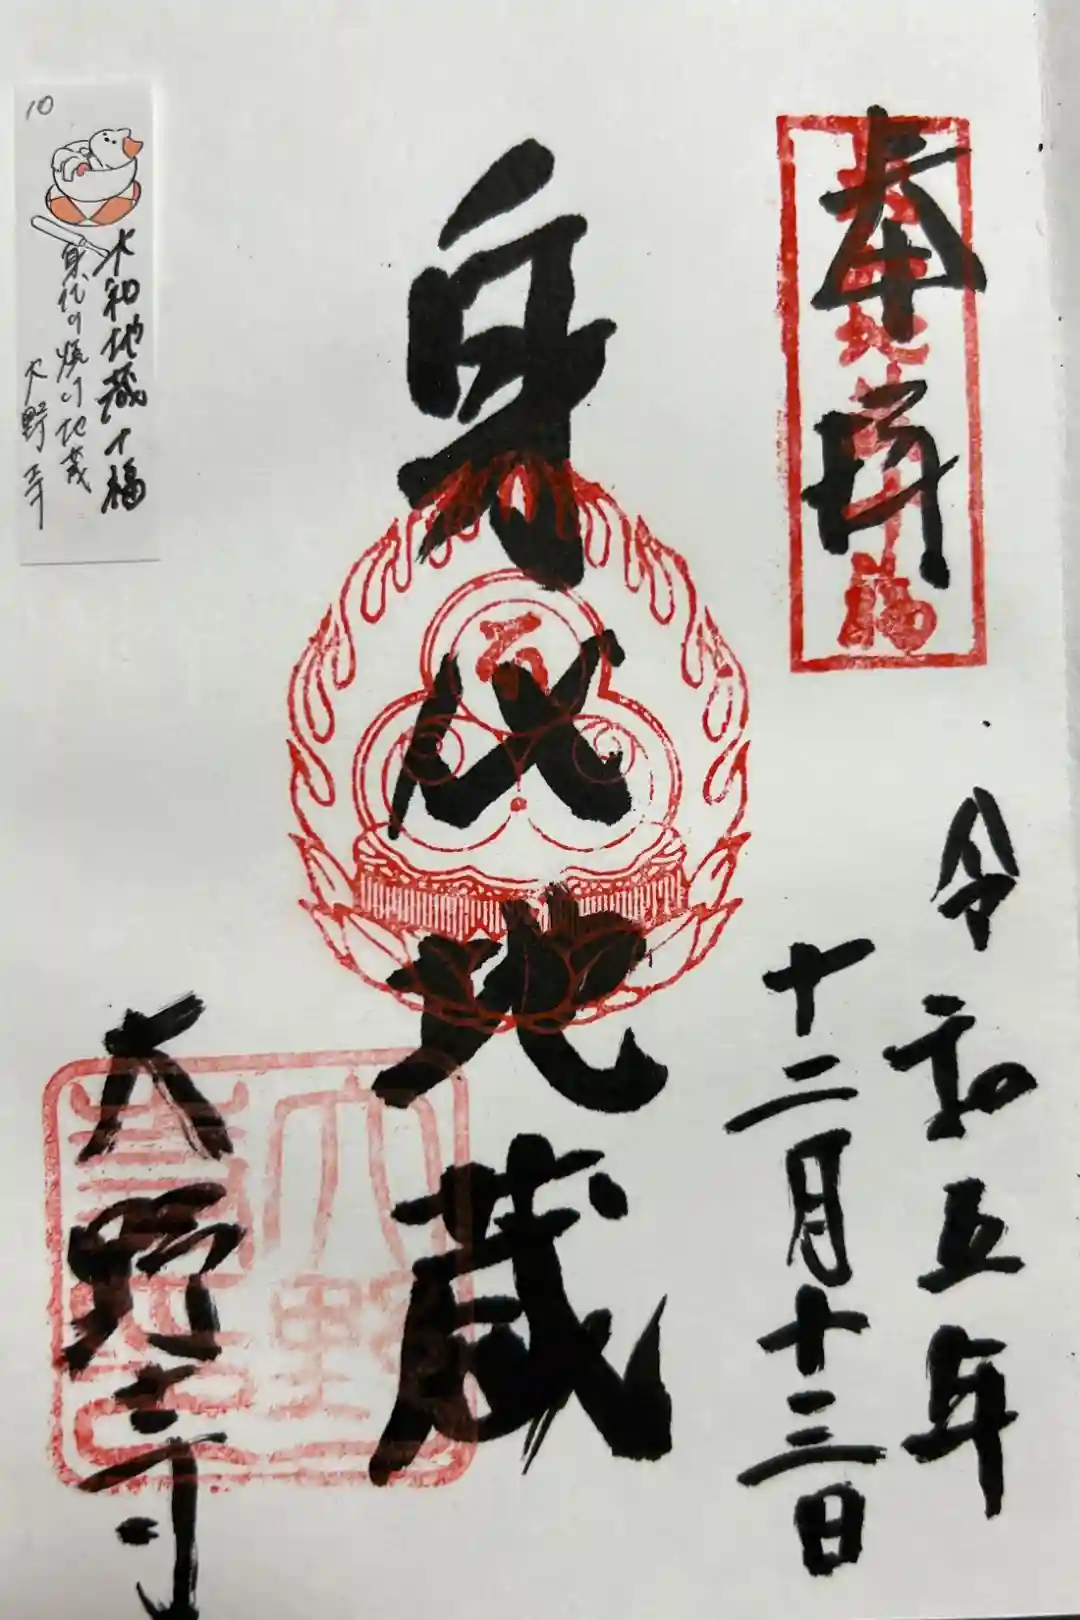 奉拝
大和地蔵十福
令和五年
十二月十三日
身代地蔵
大野寺
大野
10
大和地蔵十福
身代り焼け地蔵
大野寺